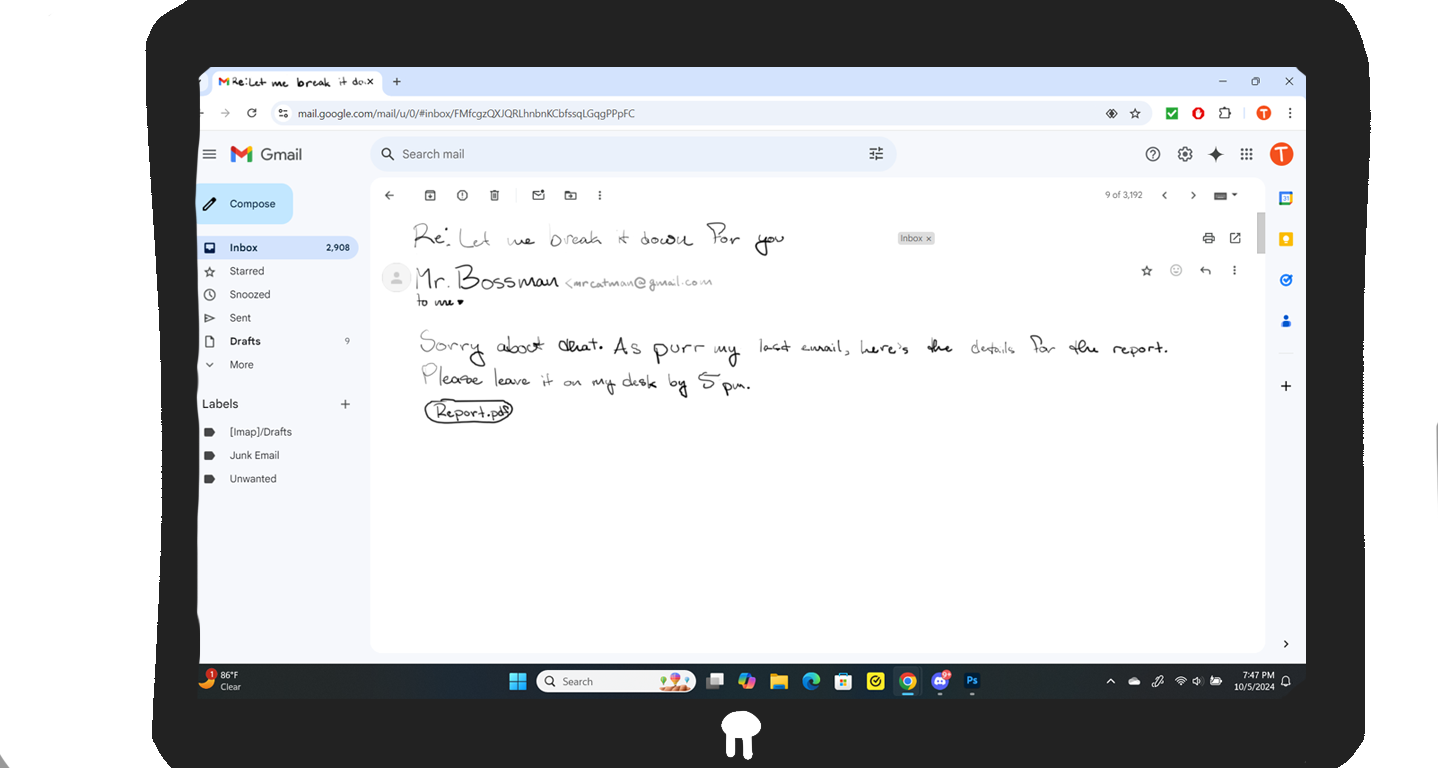 Re: Let me break it do.x
mail.google.com/mail/u/0/#inbox/FMfcgzQXJQRLhnbnKCbfssqLGqgPPpFC
T
Gmail
Search mail
T
Compose
9 of 3,192
31
Inbox 2,908
Starred
Snoozed
Sent
Drafts 9
More
Labels
[Imap]/Drafts
Junk Email
Unwanted
Re: Let me break it down for you
Inbox x
Mr. Bossman <mrcatman@gmail.com
to me
Sorry about that. As purr my last email, here's the details for the report.
Please leave it on my desk by 5 pm.
Report.pdf
1
86°F
Clear
Search
9+
Ps
7:47 PM
10/5/2024